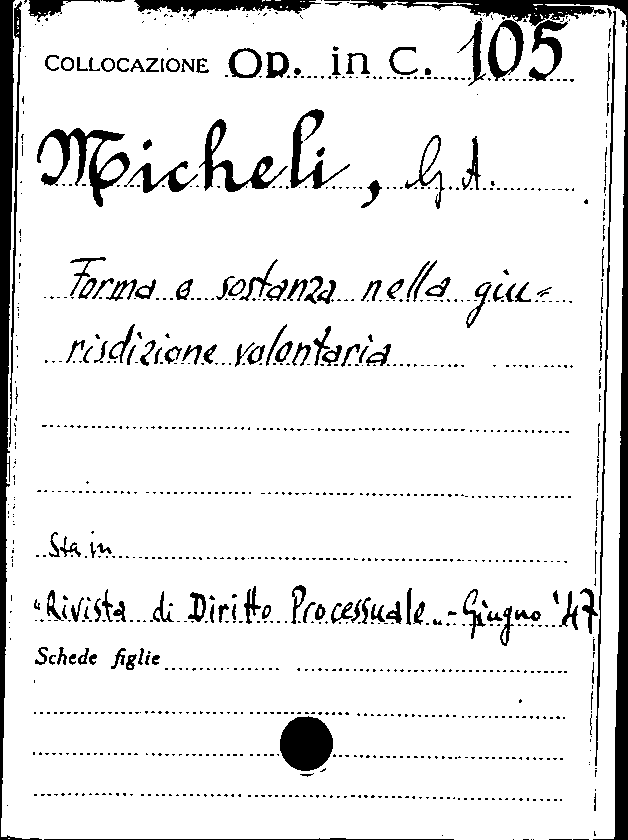 COLLOCAZIONE OD. in C. 105
Micheli, G. A.
Forma e sostanza nella giu-
risdizione volontaria
Sta in
"Rivista di Diritto Processuale„ - Giugno '47
Schede figlie